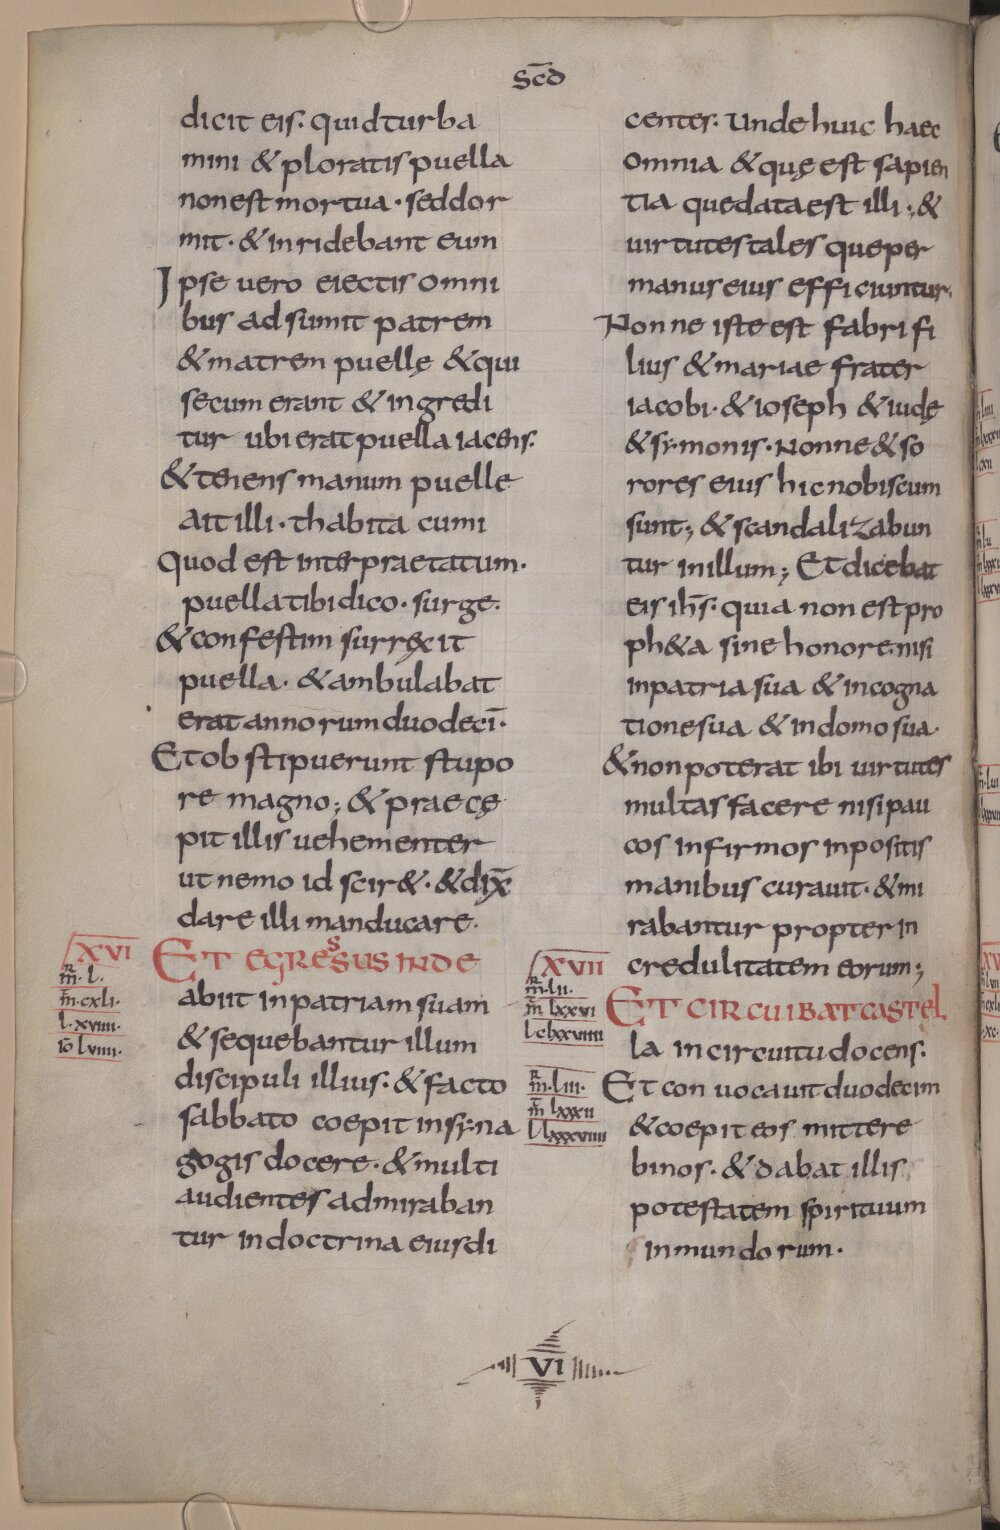 Scd
dicit eis. quid turba
mini & ploratis puella
non est mortua. sed dor
mit. & inridebant eum
Ipse vero eiectis omni
bus adsumit patrem
& matrem puellę & qui
secum erant & ingredi
tur ubi erat puella iacens.
& tenens manum puelle
ait illi. thabita cumi
Quod est interpraetatum.
puella tibi dico. surge.
& confestim surręxit
puella. & ambulabat
erat annorum duodecī.
Et obstipuerunt stupo
re magno; & praecę
pit illis uehementer
ut nemo id scir&. & dix̄
dare illi manducare.
XVI
m̄. L.
m̄. cxli.
l. xviiii.
iō lviiii.
ET EGRESSUS INDE
abiit in patriam suam
& sequebantur illum
discipuli illius. & facto
sabbato coepit in syna
gogis docere. & multi
audientes admiraban
tur in doctrina eius di
centes. Unde huic haec
omnia & quę est sapien
tia que data est illi; &
uirtutes tales que per
manus eius efficiuntur.
Nonne iste est fabri fi
lius & mariae frater
iacobi. & ioseph & iudę
& symonis. Nonne & so
rores eius hic nobiscum
sunt; & scandalizabun
tur in illum; Et dicebat
eis ihs̄. quia non est pro
ph&a sine honore nisi
in patria sua & in cogna
tione sua & in domo sua.
& non poterat ibi uirtutes
multas facere nisi pau
cos infirmos inpositis
manibus curauit. & mi
rabantur propter in
credulitatem eorum;
XVII
m̄. Lii.
m̄ lxxvi
l. clxxviiii
ET CIRCUIBAT CASTEL
la in circuitu docens.
m̄. liii.
m̄ lxxxii
l. lxxxviiii
Et conuocauit duodecim
& coepit eos mittere
binos. & dabat illis
potestatem spirituum
inmundorum.
VI